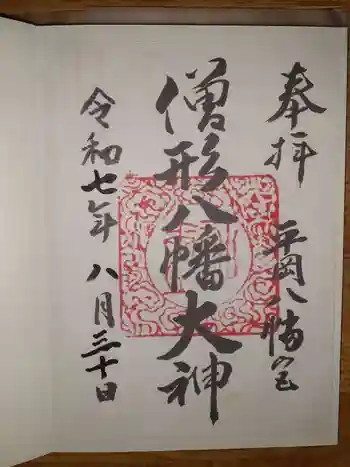 奉拝
平岡八幡宮
僧形八幡大神
令和七年八月三十日